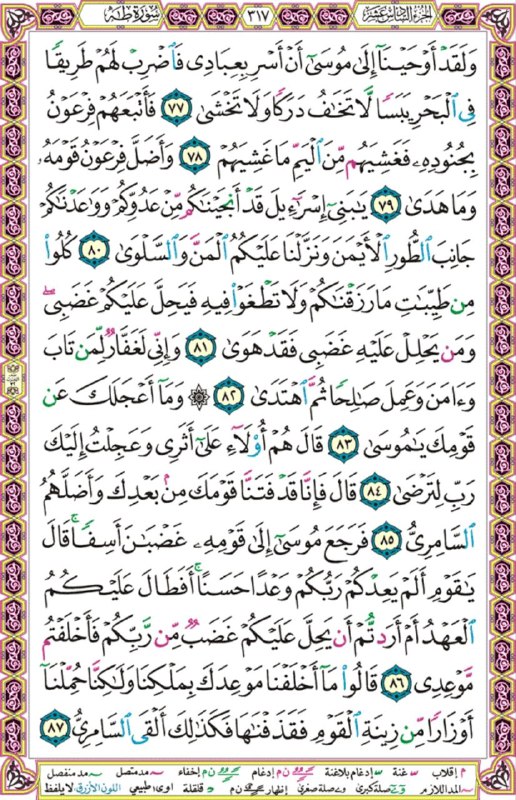 الجزء السادس عشر ٣١٧ سورة طه
وَلَقَدْ أَوْحَيْنَآ إِلَىٰ مُوسَىٰٓ أَنْ أَسْرِ بِعِبَادِى فَٱضْرِبْ لَهُمْ طَرِيقًا
فِى ٱلْبَحْرِ يَبَسًا لَّا تَخَٰفُ دَرَكًا وَلَا تَخْشَىٰ ٧٧ فَأَتْبَعَهُمْ فِرْعَوْنُ
بِجُنُودِهِۦ فَغَشِيَهُم مِّنَ ٱلْيَمِّ مَا غَشِيَهُمْ ٧٨ وَأَضَلَّ فِرْعَوْنُ قَوْمَهُۥ
وَمَا هَدَىٰ ٧٩ يَٰبَنِىٓ إِسْرَٰٓءِيلَ قَدْ أَنجَيْنَٰكُم مِّنْ عَدُوِّكُمْ وَوَٰعَدْنَٰكُمْ
جَانِبَ ٱلطُّورِ ٱلْأَيْمَنَ وَنَزَّلْنَا عَلَيْكُمُ ٱلْمَنَّ وَٱلسَّلْوَىٰ ٨٠ كُلُوا۟
مِن طَيِّبَٰتِ مَا رَزَقْنَٰكُمْ وَلَا تَطْغَوْا۟ فِيهِ فَيَحِلَّ عَلَيْكُمْ غَضَبِى ۖ
وَمَن يَحْلِلْ عَلَيْهِ غَضَبِى فَقَدْ هَوَىٰ ٨١ وَإِنِّى لَغَفَّارٌ لِّمَن تَابَ
وَءَامَنَ وَعَمِلَ صَٰلِحًا ثُمَّ ٱهْتَدَىٰ ٨٢ ۞ وَمَآ أَعْجَلَكَ عَن
قَوْمِكَ يَٰمُوسَىٰ ٨٣ قَالَ هُمْ أُو۟لَآءِ عَلَىٰٓ أَثَرِى وَعَجِلْتُ إِلَيْكَ
رَبِّ لِتَرْضَىٰ ٨٤ قَالَ فَإِنَّا قَدْ فَتَنَّا قَوْمَكَ مِنۢ بَعْدِكَ وَأَضَلَّهُمُ
ٱلسَّامِرِىُّ ٨٥ فَرَجَعَ مُوسَىٰٓ إِلَىٰ قَوْمِهِۦ غَضْبَٰنَ أَسِفًا ۚ قَالَ
يَٰقَوْمِ أَلَمْ يَعِدْكُمْ رَبُّكُمْ وَعْدًا حَسَنًا ۚ أَفَطَالَ عَلَيْكُمُ
ٱلْعَهْدُ أَمْ أَرَدتُّمْ أَن يَحِلَّ عَلَيْكُمْ غَضَبٌ مِّن رَّبِّكُمْ فَأَخْلَفْتُم
مَّوْعِدِى ٨٦ قَالُوا۟ مَآ أَخْلَفْنَا مَوْعِدَكَ بِمَلْكِنَا وَلَٰكِنَّا حُمِّلْنَآ
أَوْزَارًا مِّن زِينَةِ ٱلْقَوْمِ فَقَذَفْنَٰهَا فَكَذَٰلِكَ أَلْقَى ٱلسَّامِرِىُّ ٨٧
م إقلاب س غنة س إدغام بلاغنة ن م إدغام ن م إخفاء مد متصل مد منفصل
المد اللازم صلة كبرى وے صلة صغرى إظهار ن م د قلقلة اوى: طبيعي اللون الأزرق لا يلفظ